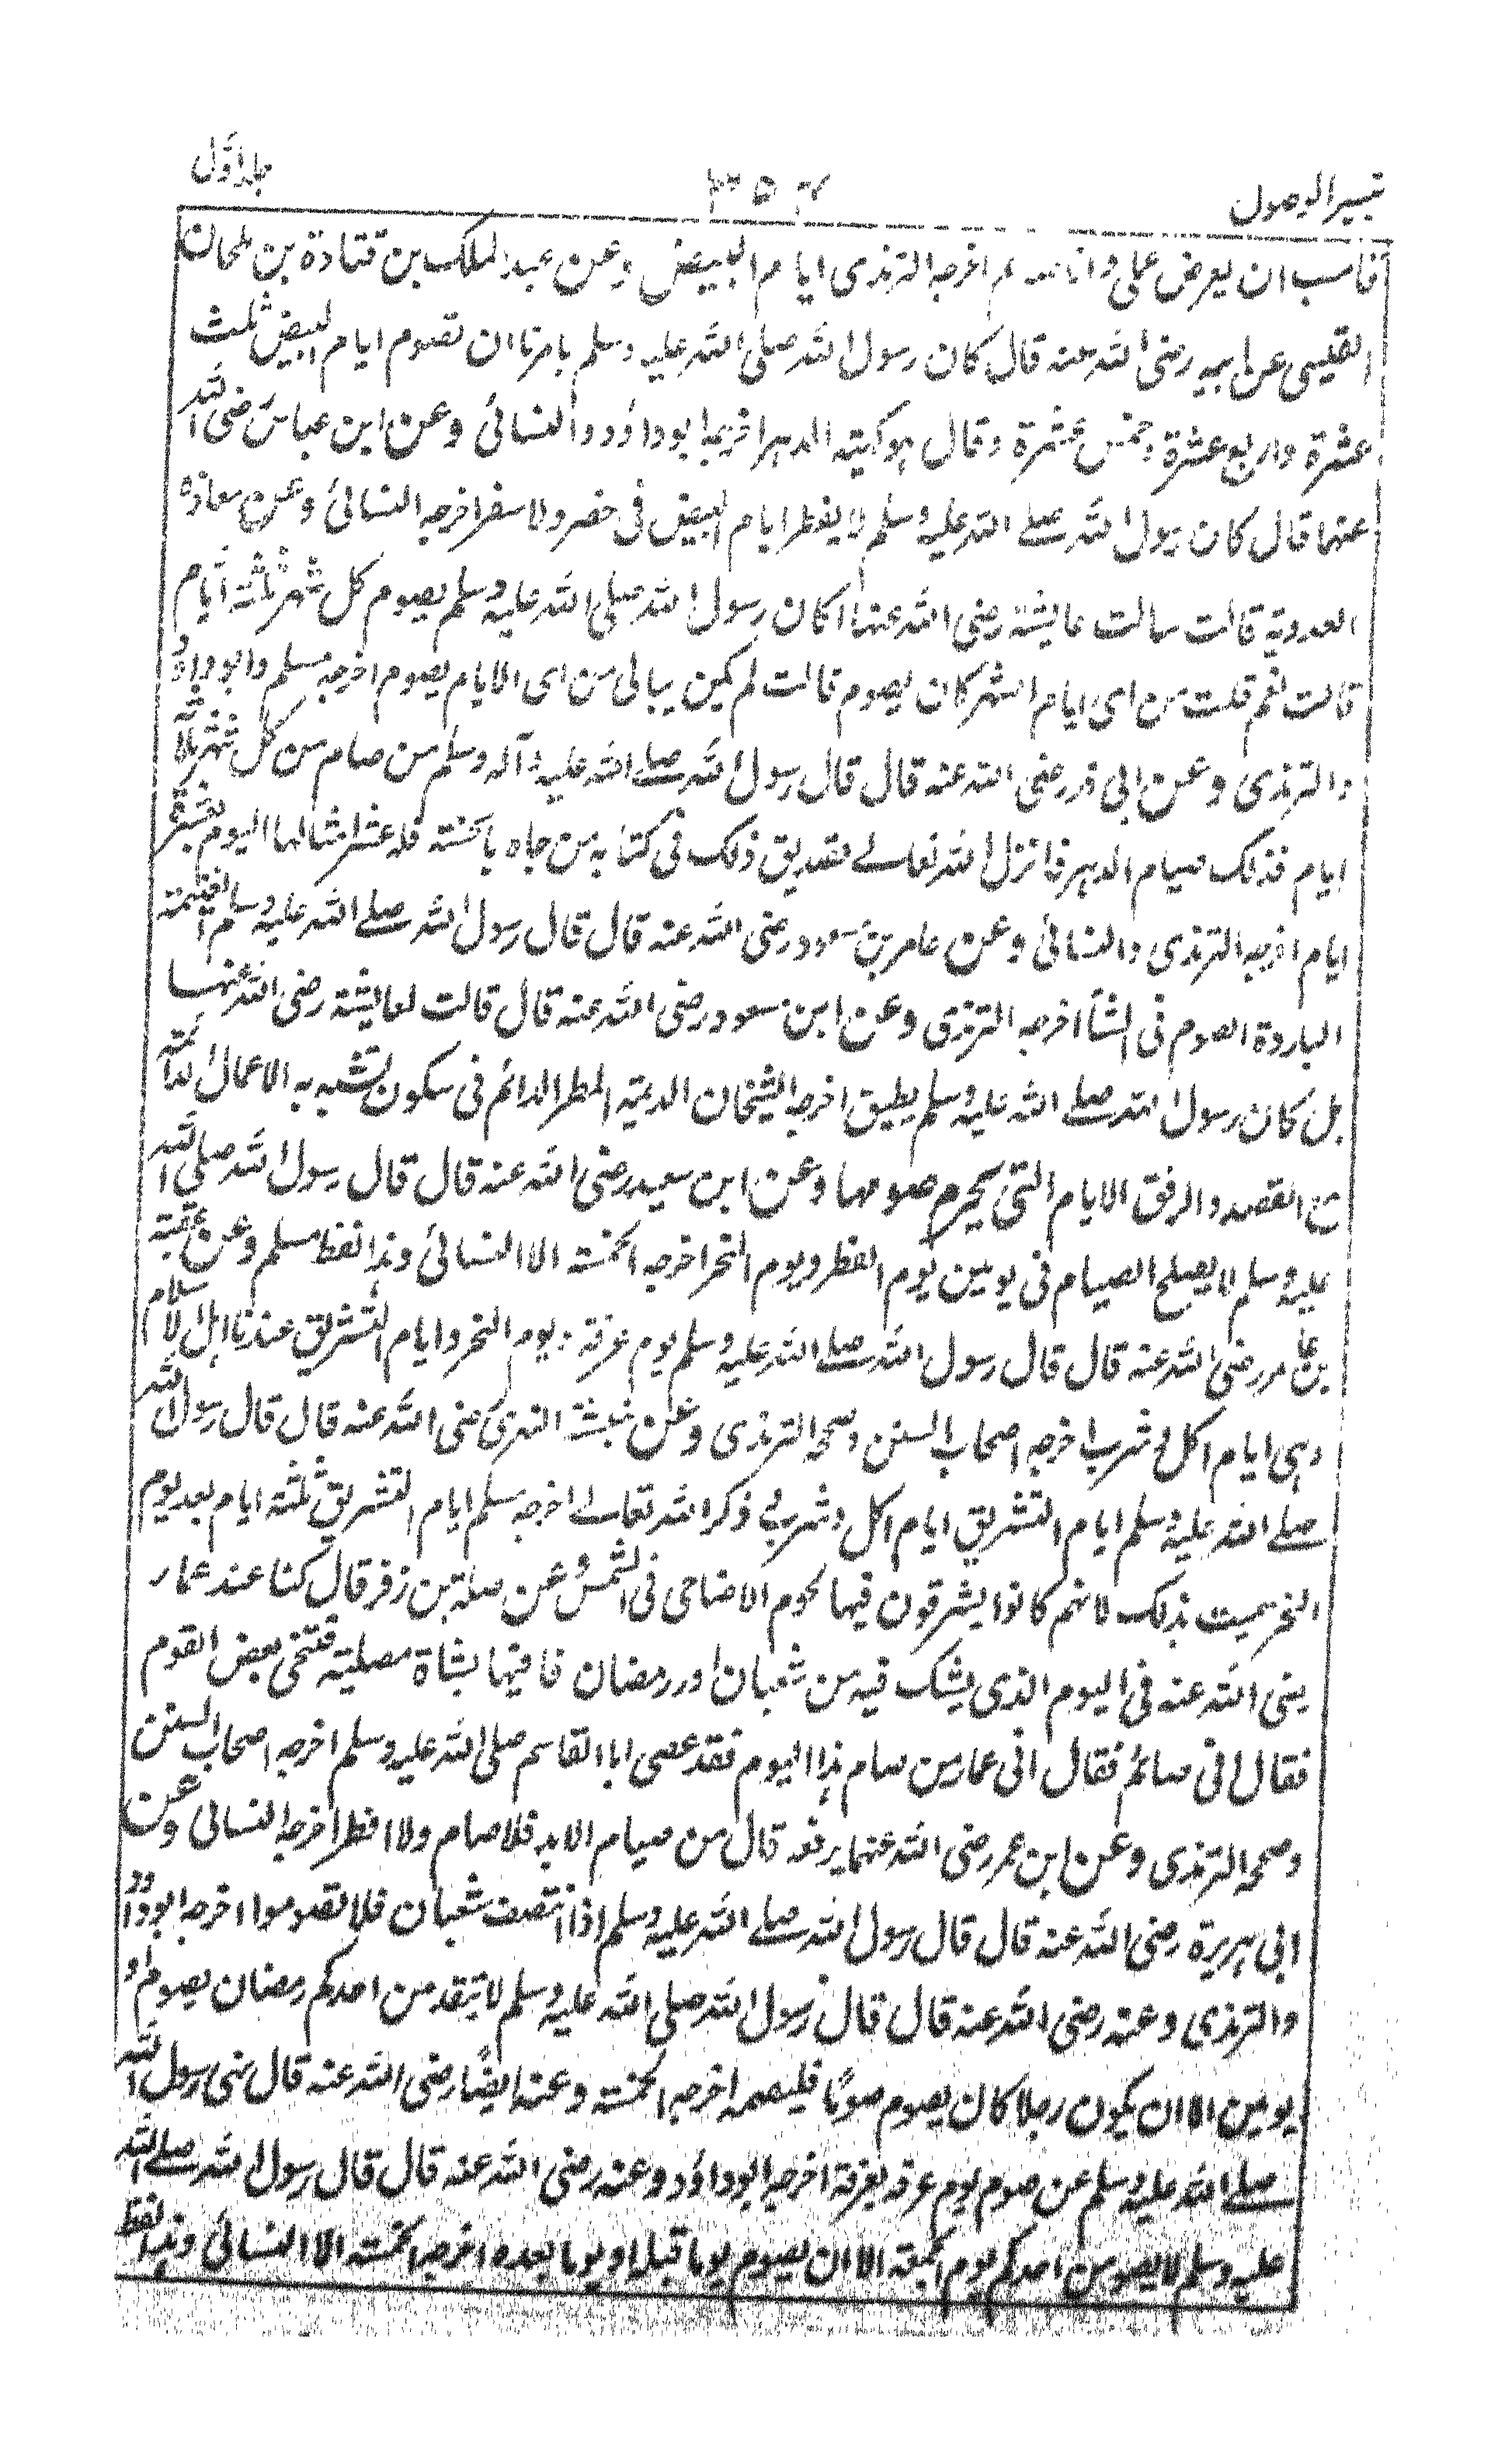 تيسير الوصول ٣٥٢ جلد اول
فاحب ان يعرض عملى وانا صائم اخرجه الترمذى ايام البيض وعن عبد الملك بن قتادة بن ملحان
القيسى عن ابيه رضى الله عنه قال كان رسول الله صلى الله عليه وسلم يامرنا ان نصوم ايام البيض ثلث
عشرة واربع عشرة وخمس عشرة وقال هو كهيئة الدهر اخرجه ابو داؤد والنسائى وعن ابن عباس رضى الله
عنهما قال كان رسول الله صلے الله عليه وسلم لا يفطر ايام البيض فى حضر ولا سفر اخرجه النسائى وعن معاذه
العدوية قالت سالت عايشة رضى الله عنها اكان رسول الله صلى الله عليه وسلم يصوم كل شهر ثلثة ايام
قالت نعم قلت من اى ايام الشهر كان يصوم قالت لم يكن يبالى من اى الايام يصوم اخرجه مسلم وابو داؤد
والترمذى وعن ابى ذر رضى الله عنه قال قال رسول الله صلے الله عليه وآله وسلم من صام من كل شهر ثلاثة
ايام فذلك صيام الدهر فانزل الله تعالے تصديق ذلك فى كتابه من جاء بالحسنة فله عشر امثالها اليوم بعشرة
ايام اخرجه الترمذى والنسائى وعن عامر بن مسعود رضى الله عنه قال قال رسول الله صلے الله عليه وسلم الغنيمة
الباردة الصوم فى الشتآ اخرجه الترمذى وعن ابن مسعود رضى الله عنه قال قالت لعايشة رضى الله عنها
بل كان رسول الله صلے الله عليه وسلم يطيق اخرجه الشيخان الديمة المطر الدائم فى سكون تشبه به الاعمال الدآئمة
مع القصد والرفق الايام التى يحرم صومها وعن ابن سعيد رضى الله عنه قال قال رسول الله صلى الله
عليه وسلم لا يصلح الصيام فى يومين يوم الفطر ويوم النحر اخرجه الخمسة الا النسائى وهذا لفظ مسلم وعن عقبة
بن عامر رضى الله عنه قال قال رسول الله صلے الله عليه وسلم يوم عرفة ويوم النحر وايام التشريق عندنا اهل الاسلام
وهى ايام اكل وشرب اخرجه اصحاب السنن وصححه الترمذى وعن نبيشة الهذلى رضى الله عنه قال قال رسول الله
صلے الله عليه وسلم ايام التشريق ايام اكل وشرب وذكر الله تعالے اخرجه مسلم ايام التشريق ثلثة ايام بعد يوم
النحر سميت بذلك لانهم كانوا يشرقون فيها لحوم الاضاحى فى الشمس وعن صلة بن زفر قال كنا عند عمار
رضى الله عنه فى اليوم الذى يشك فيه من شعبان او رمضان فاتينا بشاة مصلية فتنحى بعض القوم
فقال انى صائم فقال انى عمار من صام هذا اليوم فقد عصى ابا القاسم صلى الله عليه وسلم اخرجه اصحاب السنن
وصححه الترمذى وعن ابن عمر رضى الله عنهما يرفعه قال من صيام الابد فلا صام ولا افطر اخرجه النسائى وعن
ابى هريرة رضى الله عنه قال قال رسول الله صلے الله عليه وسلم اذا انتصف شعبان فلا تصوموا اخرجه ابو داؤد
والترمذى وعنه رضى الله عنه قال قال رسول الله صلى الله عليه وسلم لا يتقدمن احدكم رمضان بصوم او
يومين الا ان يكون رجلا كان يصوم صومًا فليصمه اخرجه الخمسة وعنه ايضًا رضى الله عنه قال نهى رسول الله
صلے الله عليه وسلم عن صوم يوم عرفه بعرفة اخرجه ابو داؤد وعنه رضى الله عنه قال قال رسول الله صلے الله
عليه وسلم لا يصومن احدكم يوم الجمعة الا ان يصوم يوما قبله او يوما بعده اخرجه الخمسة الا النسائى وهذا لفظ